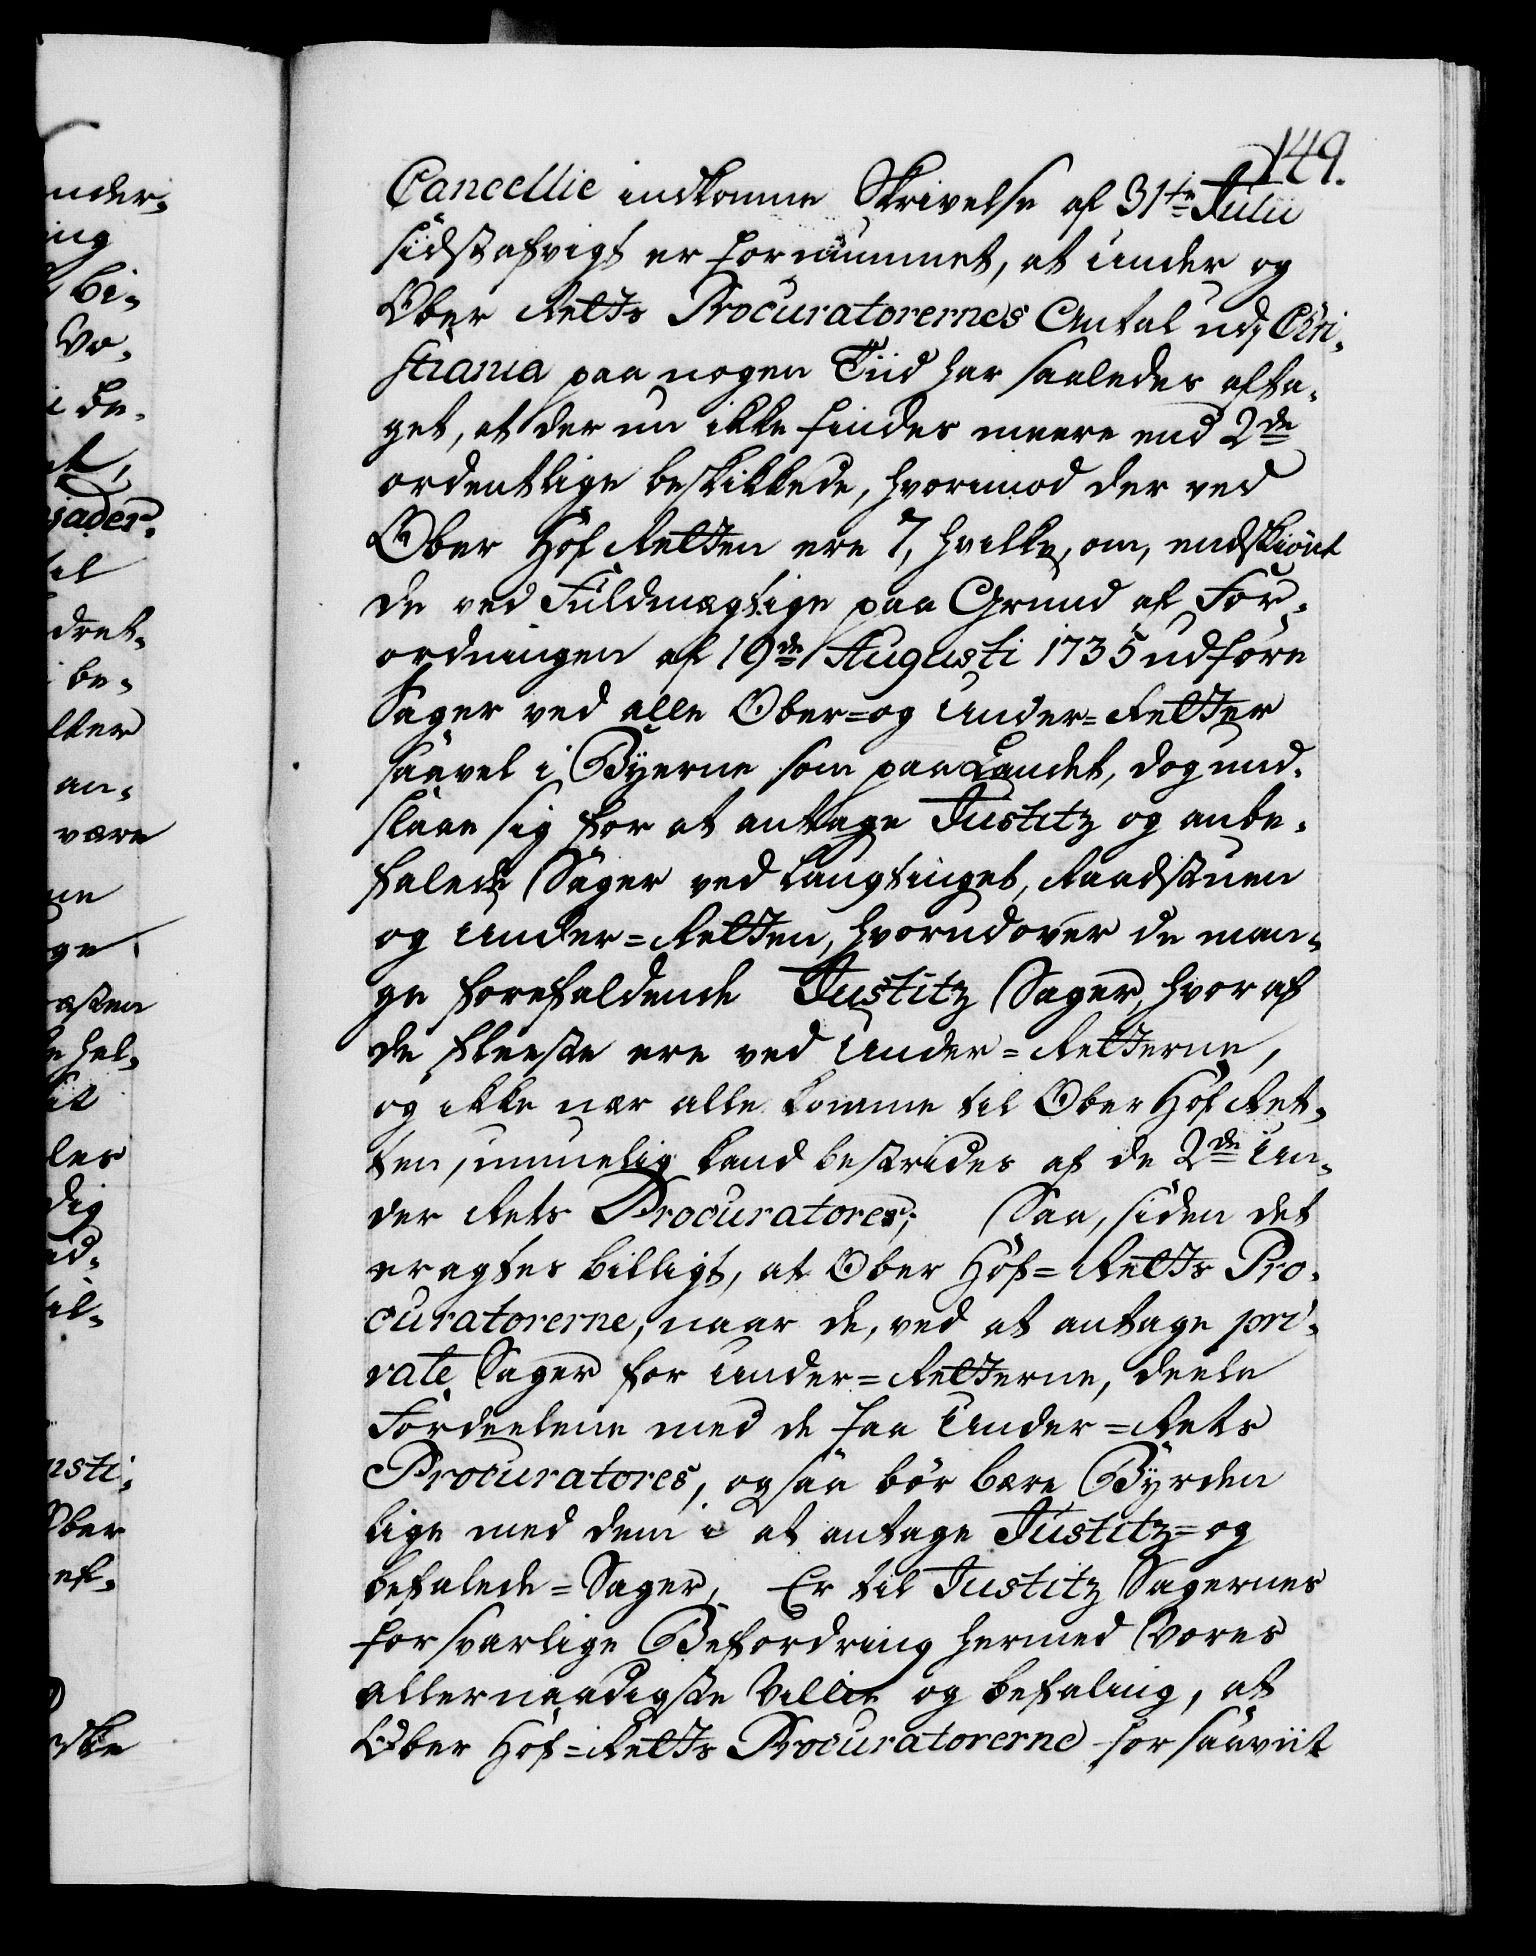 149.
Cancellie indkomne Skrivelse af 31te Julii
sidstafvigt er fornummet, at Under og
Ober Retts Procuratorernes Antal udj Chri-
stiania paa nogen Tiid har saaledes afta-
get, at der nu ikke findes meere end 2de
ordentlige beskikkede, hvorimod der ved
Ober Hof Retten ere 7, hvilke, om, endskiönt
de ved Fuldmægtige paa Grund af For-
ordningen af 19de Augusti 1735 udföre
Sager ved alle Ober= og Under=Retter
saavel i Byerne som paa Landet, dog und-
slaae sig for at antage Justitz og anbe-
falede Sager ved Laugtinget, Raadstuen
og Under=Retten, hvorudover de man-
ge forefaldende Justitz Sager, hvoraf
de fleeste ere ved Under=Retterne,
og ikke nær alle komme til Ober Hof Ret-
ten, umuelig kand bestrides af de 2de Un-
der Rets Procuratores; Saa, siden det
eragtes billigt, at Ober Hof=Retts Pro-
curatorerne, naar de, ved at antage pri-
vate Sager for Under=Retterne, deele
Fordeelene med de faa Under=Rets
Procuratores, ogsaa bör bære Byrden
lige med dem i at antage Justitz= og
befalede=Sager, Er til Justitz Sagernes
forsvarlige Befordring hermed Vores
allernaadigste Villie og befaling, at
Ober Hof=Retts Procuratorerne for saaviit